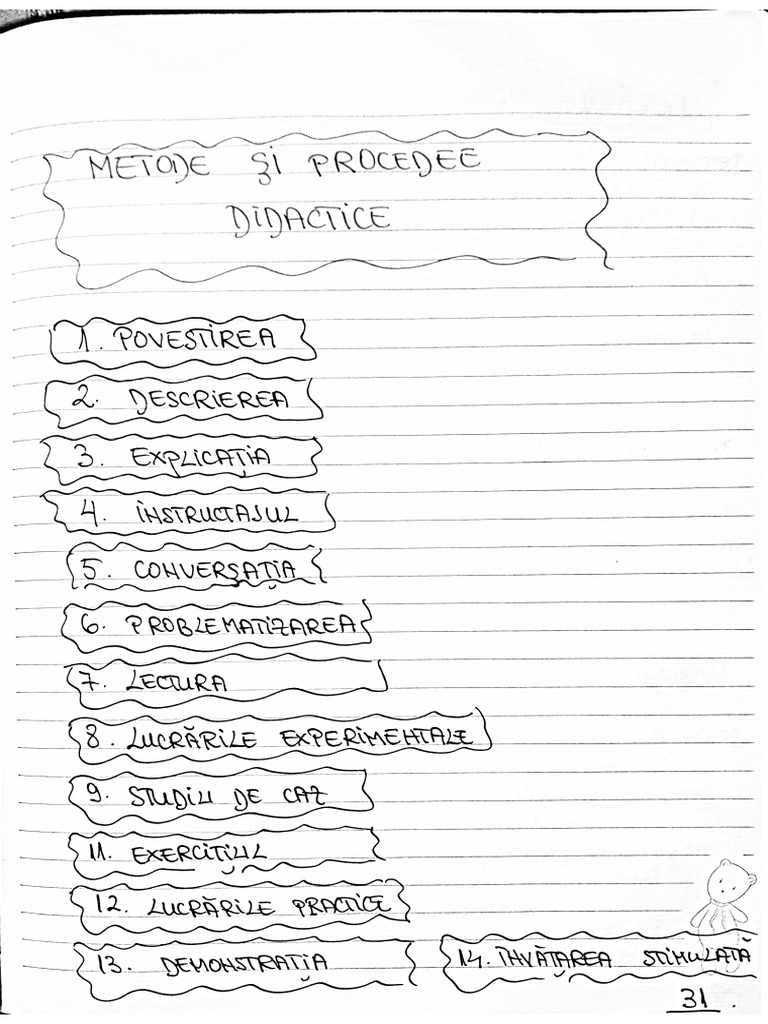 METODE ȘI PROCEDEE
DIDACTICE
1. POVESTIREA
2. DESCRIEREA
3. EXPLICAȚIA
4. INSTRUCTAJUL
5. CONVERSAȚIA
6. PROBLEMATIZAREA
7. LECTURA
8. LUCRĂRILE EXPERIMENTALE
9. STUDIU DE CAZ
11. EXERCIȚIUL
12. LUCRĂRILE PRACTICE
13. DEMONSTRAȚIA
14. ÎNVĂȚAREA STIMULATĂ
31.